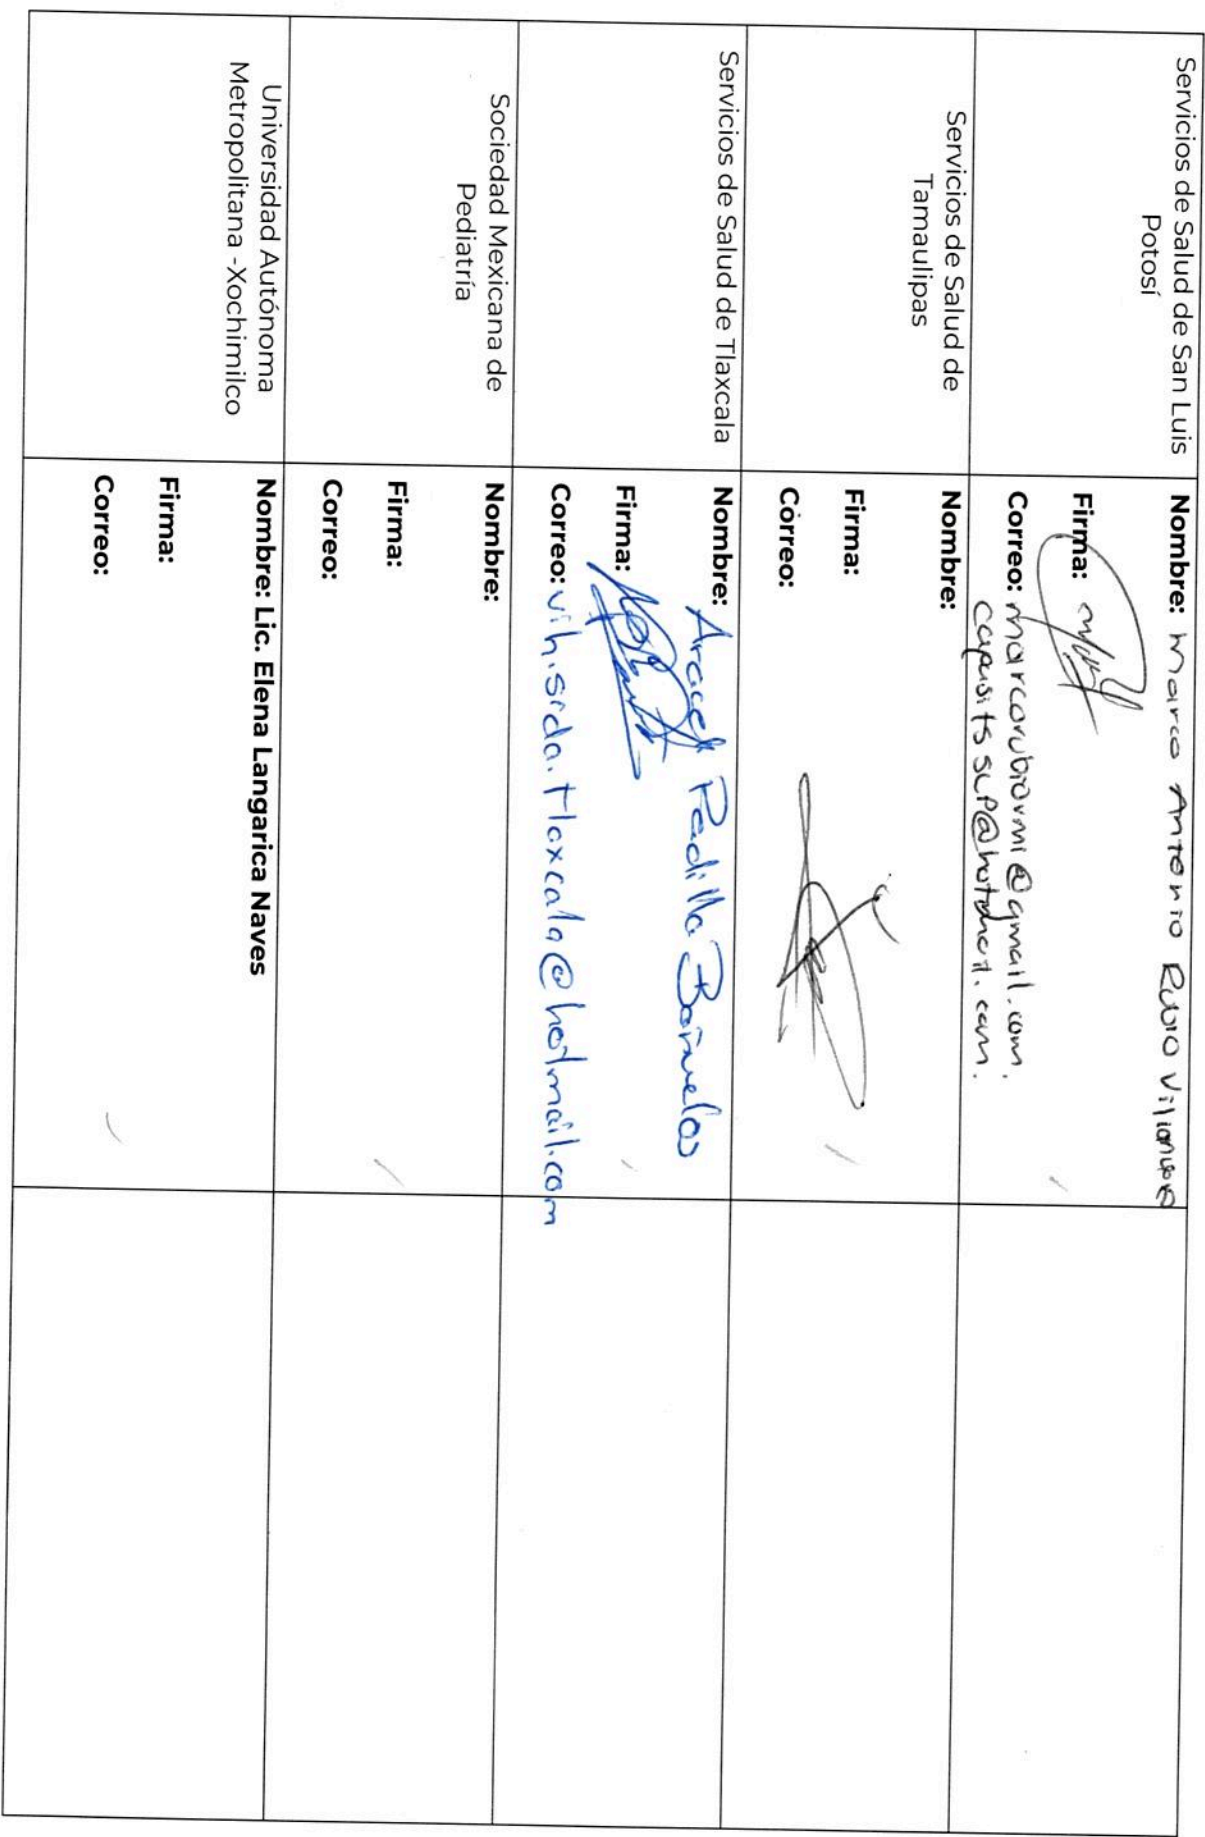 Servicios de Salud de San Luis
Potosí
Nombre: Marco Antonio Rubio Villanueva
Firma:
Correo: marcorubiovmi@gmail.com.
capasits slp@hotmail.com.
Servicios de Salud de
Tamaulipas
Nombre:
Firma:
Correo:
Servicios de Salud de Tlaxcala
Nombre: Araceli Padilla Bañuelos
Firma:
Correo: vih.sida.tlaxcala@hotmail.com
Sociedad Mexicana de
Pediatría
Nombre:
Firma:
Correo:
Universidad Autónoma
Metropolitana -Xochimilco
Nombre: Lic. Elena Langarica Naves
Firma:
Correo: